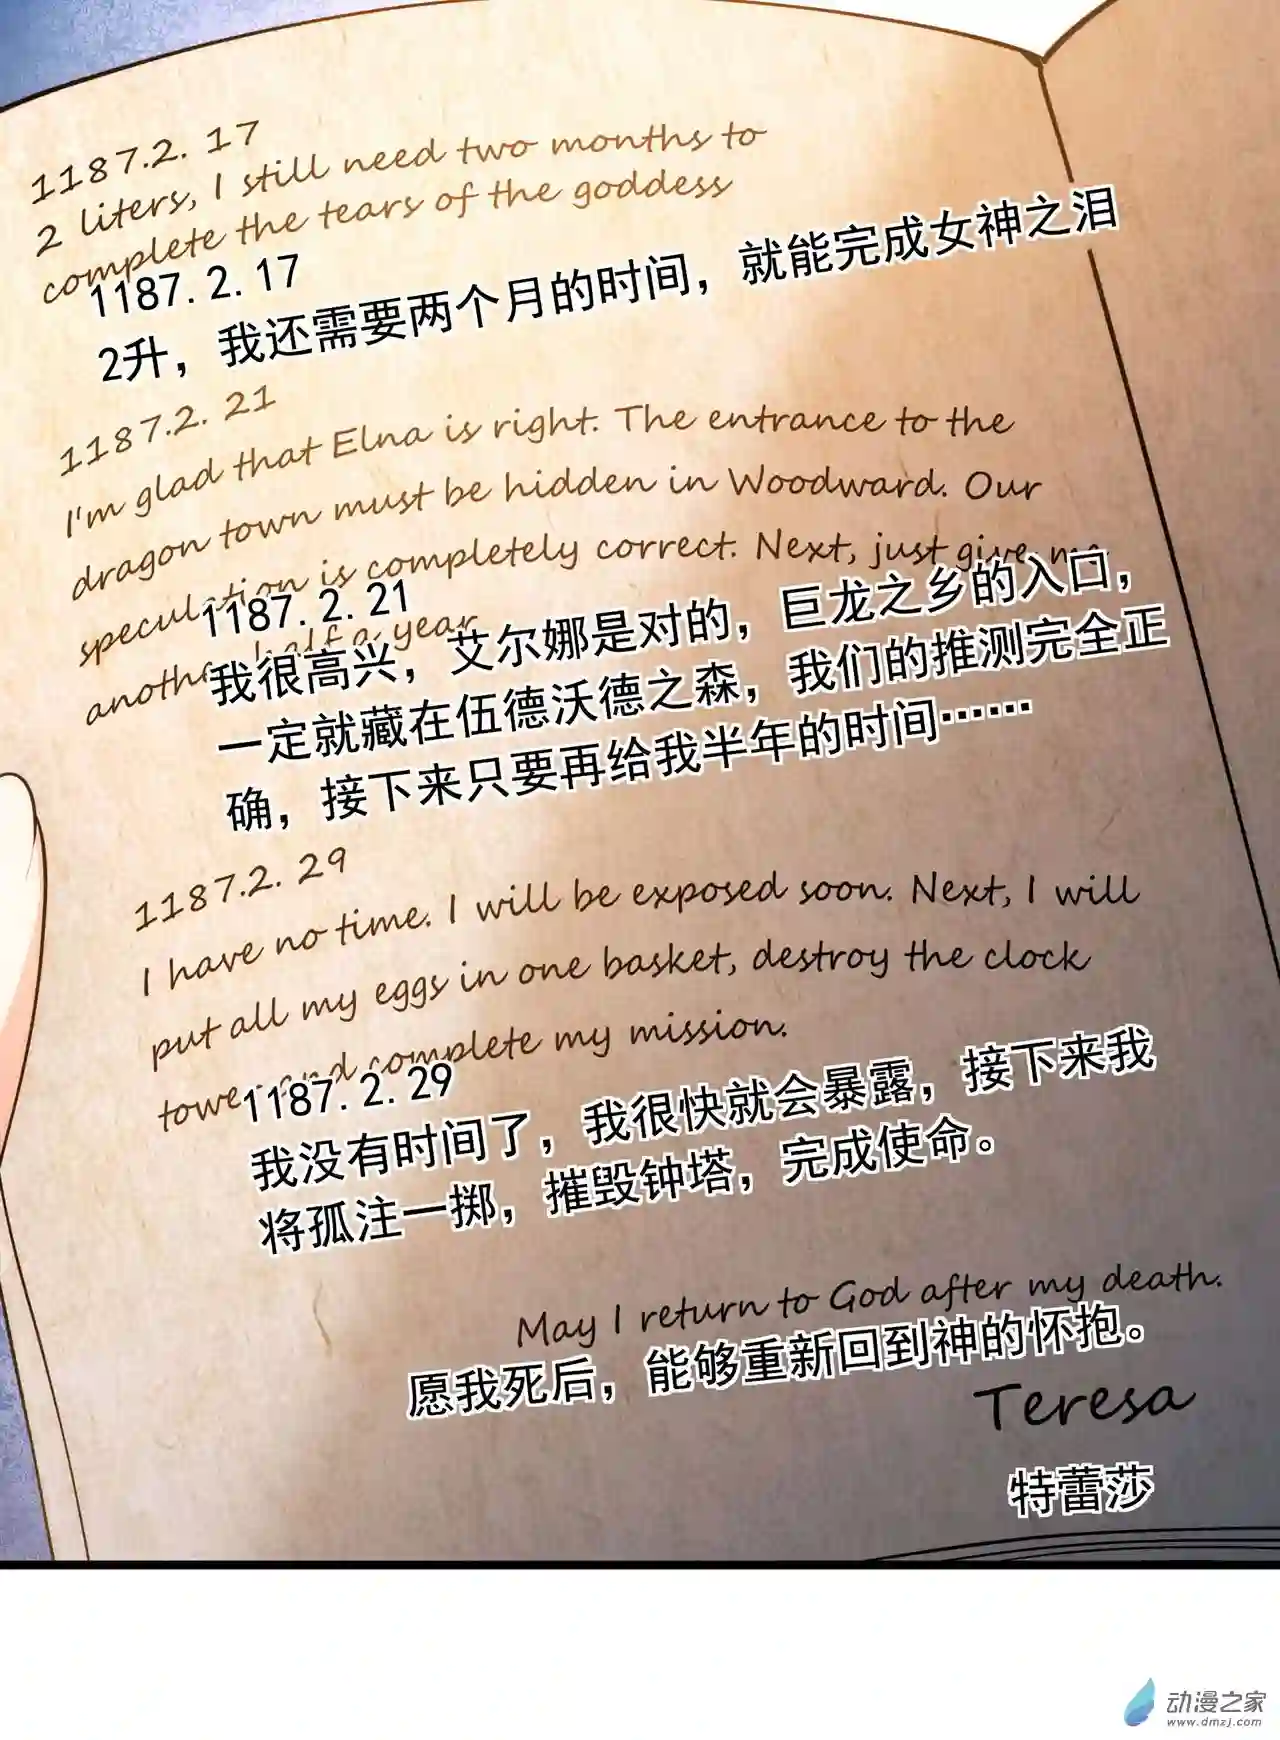 1187.2. 17
2 liters, I still need two months to
complete the tears of the goddess
1187.2.17
2升，我还需要两个月的时间，就能完成女神之泪
1187.2. 21
I'm glad that Elna is right. The entrance to the
dragon town must be hidden in Woodward. Our
speculation is completely correct. Next, just give me
another half a year
1187.2.21
我很高兴，艾尔娜是对的，巨龙之乡的入口，
一定就藏在伍德沃德之森，我们的推测完全正
确，接下来只要再给我半年的时间……
1187.2. 29
I have no time. I will be exposed soon. Next, I will
put all my eggs in one basket, destroy the clock
tower and complete my mission.
1187.2.29
我没有时间了，我很快就会暴露，接下来我
将孤注一掷，摧毁钟塔，完成使命。
May I return to God after my death.
愿我死后，能够重新回到神的怀抱。
Teresa
特蕾莎
动漫之家
www.dmzj.com